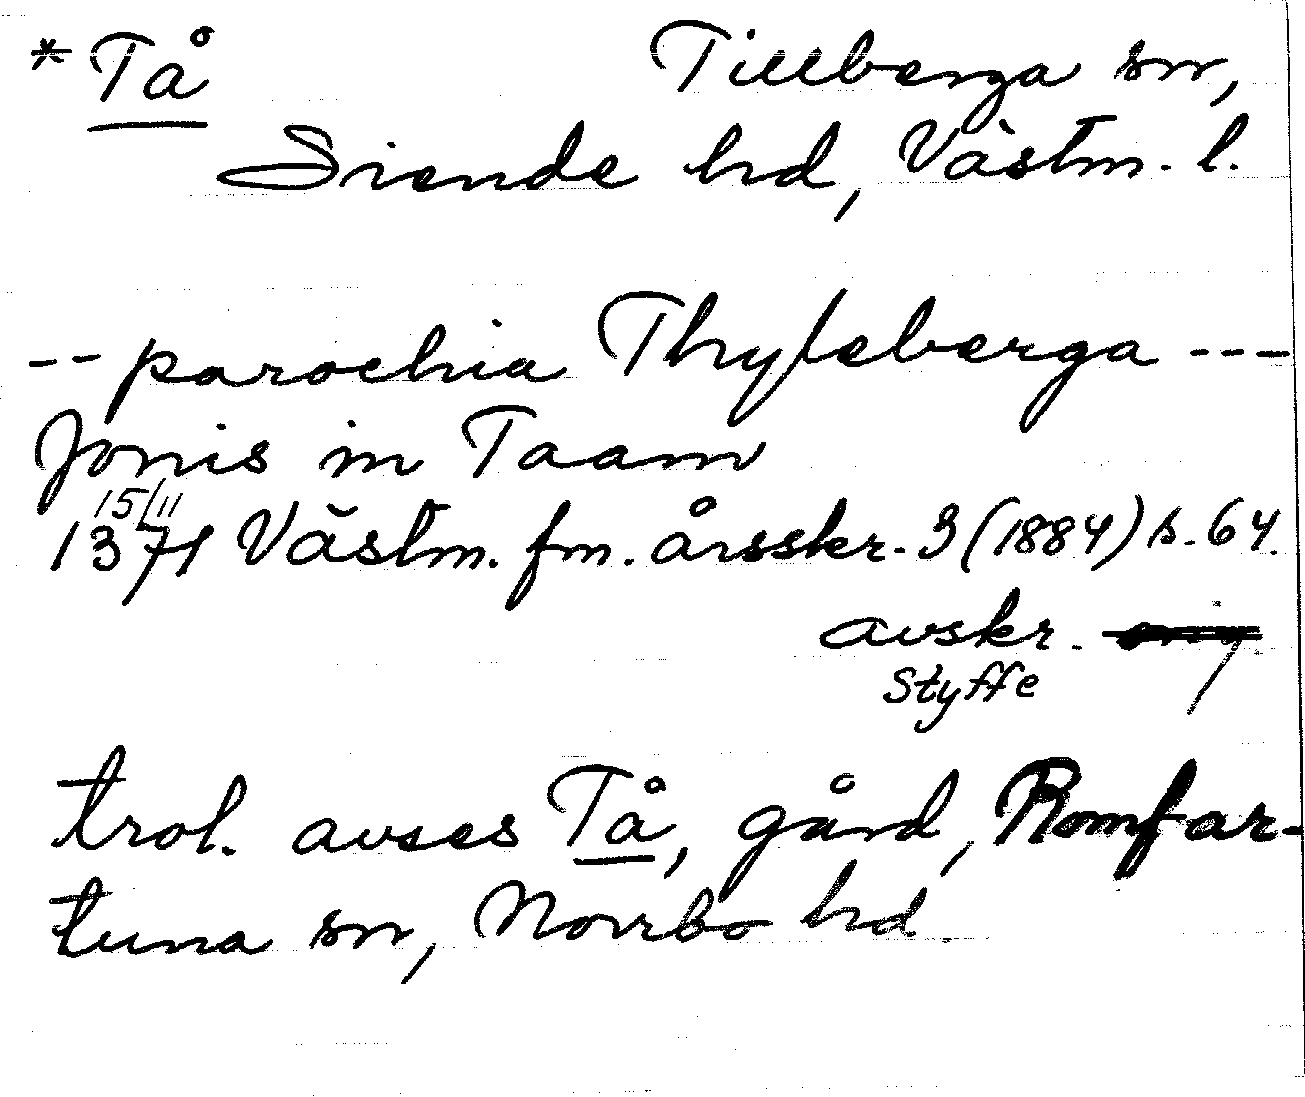 *Tå Tillberga sn,
Siende hd, Västm. l.
-- parochia Thyleberga ---
Jonis in Taam
15/11
1371 Västm. fm. årsskr. 3 (1884) s. 64.
avskr.
Styffe
trol. avses Tå, gård, Romfar-
tuna sn, Norrbo hd.